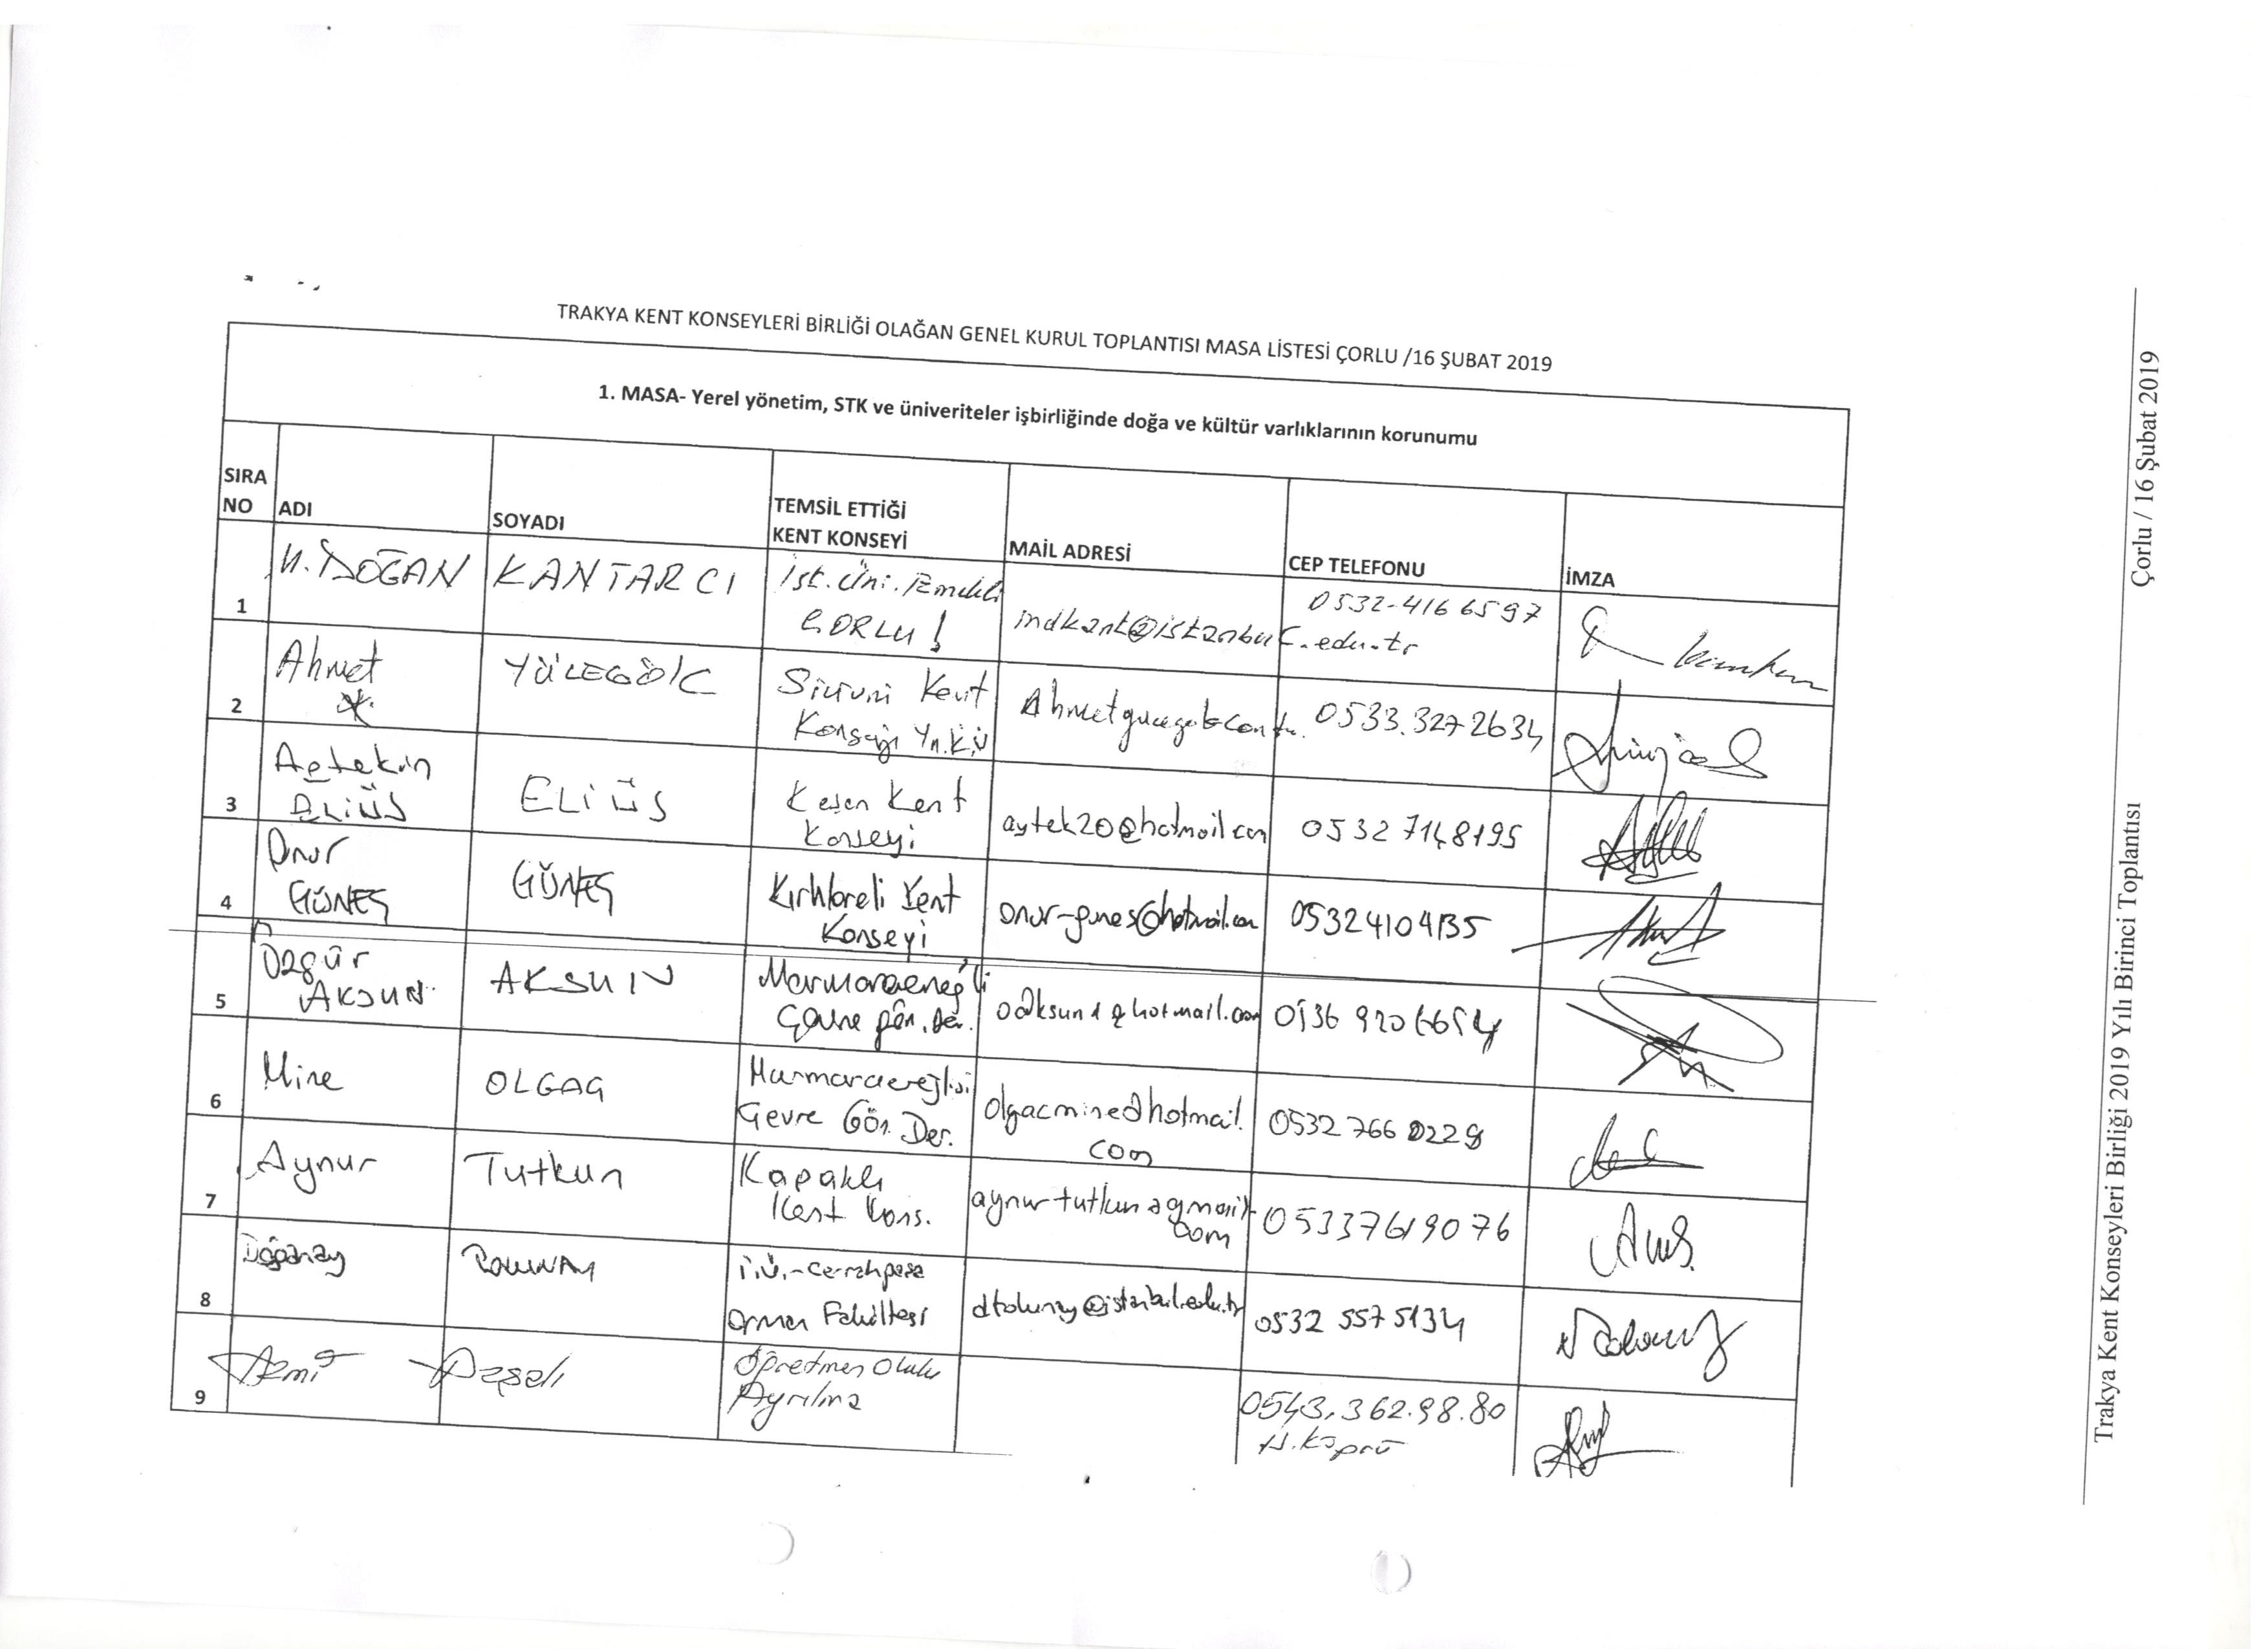 TRAKYA KENT KONSEYLERİ BİRLİĞİ OLAĞAN GENEL KURUL TOPLANTISI MASA LİSTESİ ÇORLU /16 ŞUBAT 2019
1. MASA- Yerel yönetim, STK ve üniveriteler işbirliğinde doğa ve kültür varlıklarının korunumu
SIRA NO ADI SOYADI TEMSİL ETTİĞİ KENT KONSEYİ MAİL ADRESİ CEP TELEFONU İMZA
1 DOĞAN KANTARCI İst. Üni. Emekli ÇORLU ! mdkant@istanbul.edu.tr 0532-416 6597
2 Ahmet YÜCEGÖK Silivri Kent Konseyi 0533.327 2634
3 Aytekin ELİÜS ELİÜS Keşan Kent Konseyi aytek20@hotmail.com 0532 7148195
4 Onur GÜNEŞ GÜNEŞ Kırklareli Kent Konseyi onur-gunes@hotmail.com 05324104135
5 Özgür AKSUN AKSUN Çevre Gön. Der. 0536 920 6654
6 Mine OLGAÇ Marmaraereğlisi Çevre Gön. Der. olgacmine@hotmail.com 0532 766 0228
7 Aynur Tutkun Kapaklı Kent Kons. aynurtutkun@gmail.com 05337619076
8 Doğanay TOLUNAY İ.Ü.-Cerrahpaşa Orman Fakültesi dtolunay@istanbul.edu.tr 0532 557 5134
9 Azmi Öğretmen Ayrılma 0543.362.98.80
Trakya Kent Konseyleri Birliği 2019 Yılı Birinci Toplantısı Çorlu / 16 Şubat 2019